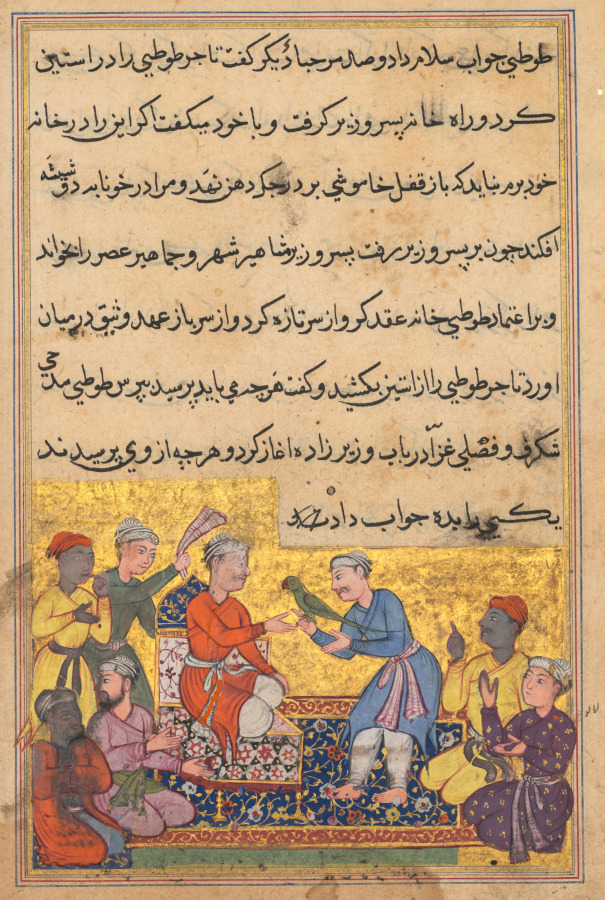 طوطیی جواب سلام داد و صد مرحبا دیگر گفت تاجر طوطیی را در استین
کرد و راه خانه پسر وزیر گرفت و با خود میگفت اگر این را در خانه
خود برم نباید که باز قفل خاموشی بر درجک دهن نهد و مرا در خونابه
افکند چون بر پسر وزیر رفت پسر وزیر مشاهیر شهر و جماهیر عصر را بخواند
و بر اعتماد طوطیی خانه عقد کرو از سر تازه کرد و از سر باز عهد وثیق در میان
اورد تاجر طوطیی را از استین بکشید و گفت هرچه می باید پرسید بپرس طوطیی مدحی
شکرف و فصلی غرّا در باب وزیر زاده اغاز کرد و هرچه از وی پرسیدند
یکی را ده جواب داد